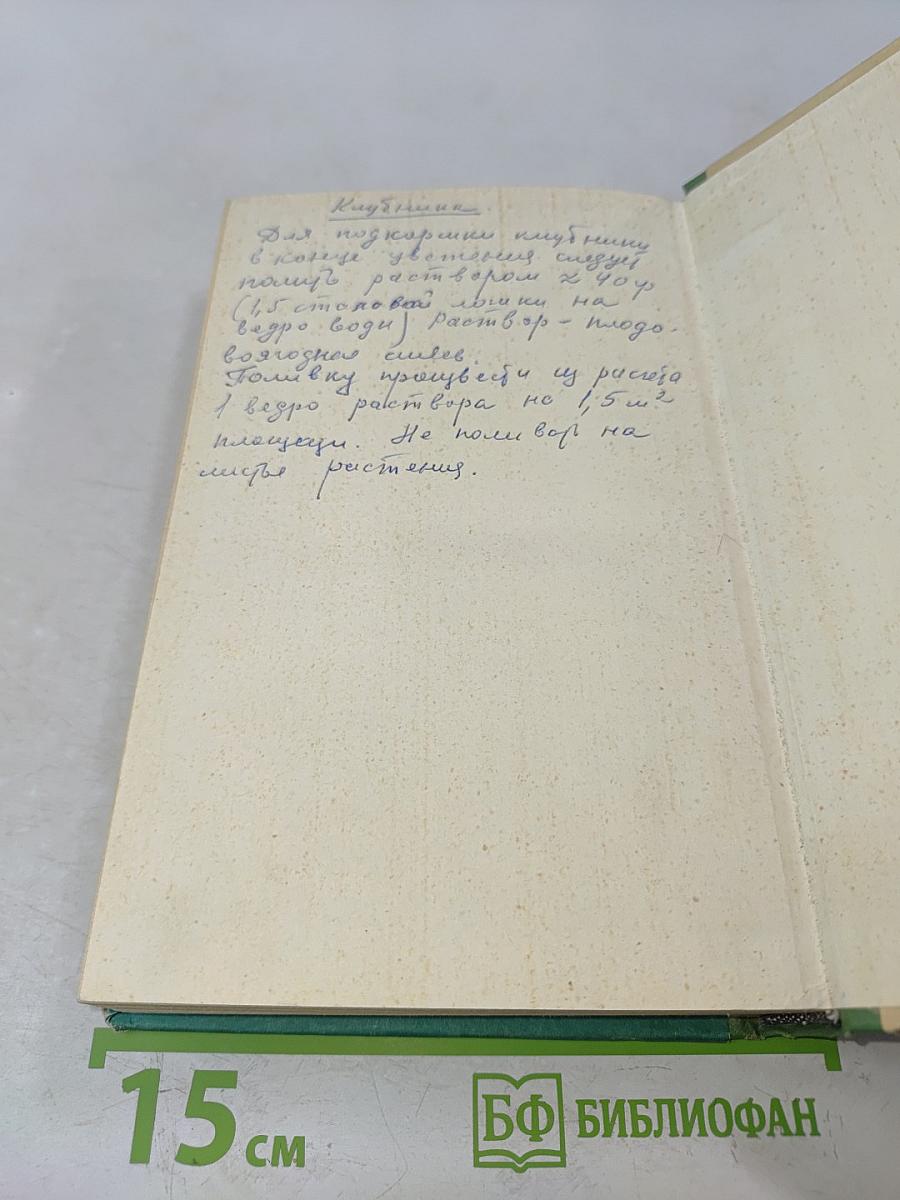 Клубника.
Для подкормки клубнику
в конце цветения следует
полить раствором 2 40гр
(1,5 столовой ложки на
ведро воды) Раствор - плодо-
воягодная смесь.
Поливку произвести из расчета
1 ведро раствора на 1,5 м²
площади. Не поливать на
листья растения.
15 см
БФ БИБЛИОФАН